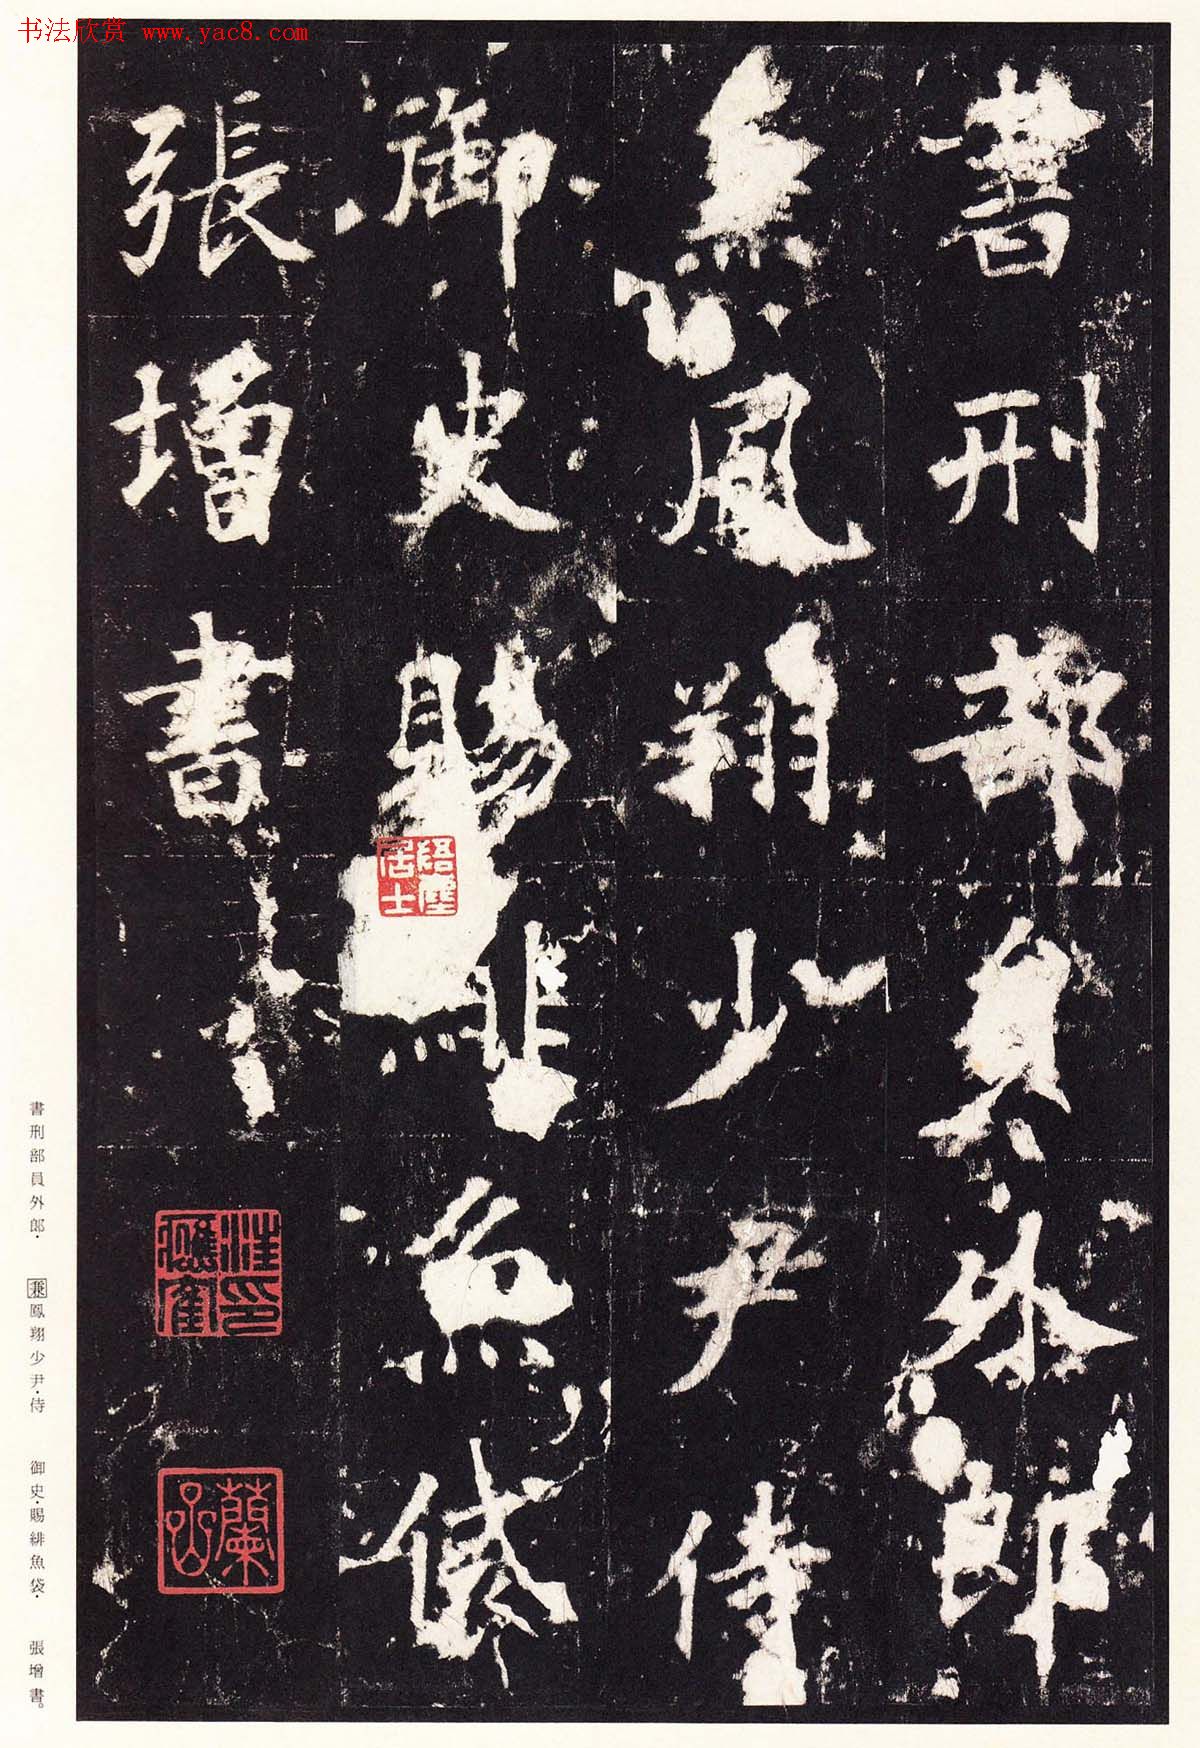 书法欣赏 www.yac8.com
書刑部員外郎
兼鳳翔少尹侍
御史賜緋魚袋
張增書
書刑部員外郎· 兼鳳翔少尹·侍 御史·賜緋魚袋· 張增書。
居士
蘭